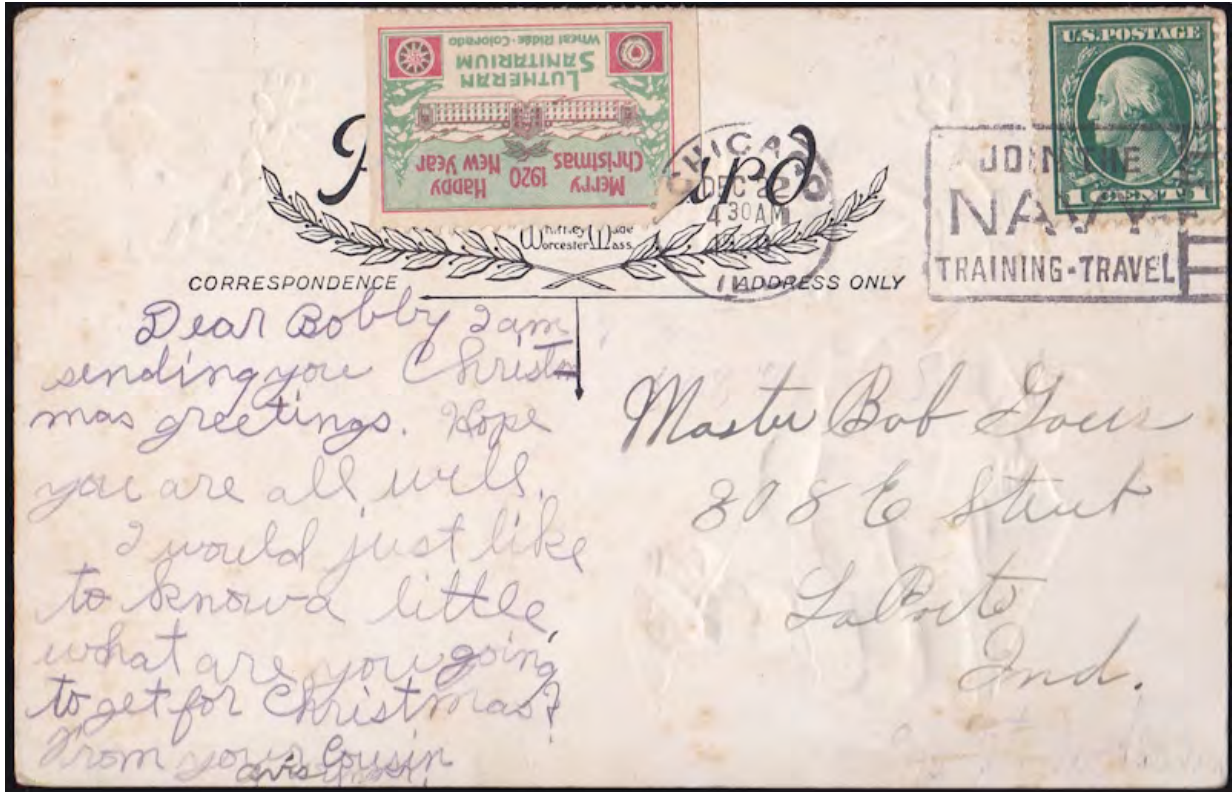 Wheat Ridge - Colorado
LUTHERAN
SANITARIUM
Merry Happy
Christmas 1920 New Year
U.S. POSTAGE
P ard
CHICAGO
DEC 22
4 30 AM
JOIN THE
NAVY
TRAINING - TRAVEL
Worcester Mass.
CORRESPONDENCE
ADDRESS ONLY
Dear Bobby I am
sending you Christ-
mas greetings. Hope
you are all well.
I would just like
to know a little,
what are you going
to get for Christmas?
From your Cousin
Master Bob Goers
808 E Street
LaPorte
Ind.